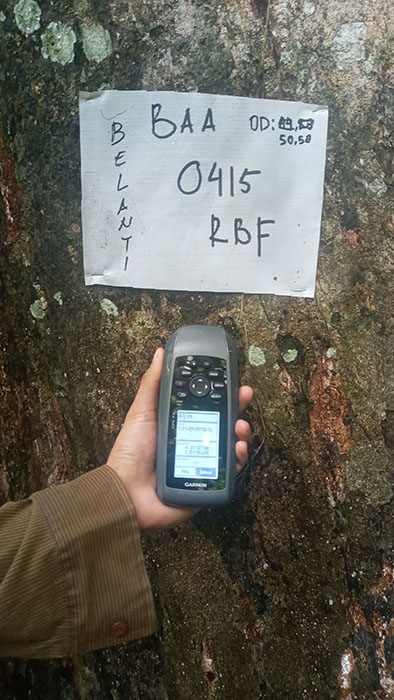 BELANTI
BAA OD:
50,50
0415
RBF
GARMIN